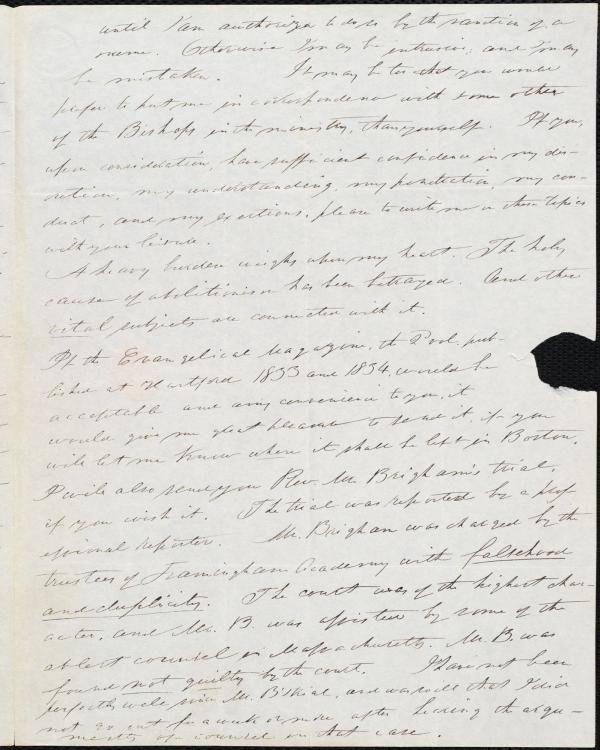 until I am authorized to do so by the sanction of a
name. Otherwise I may be intrusive; and I may
be mistaken. It may be too that you would
prefer to put me in correspondence with some other
of the Bishops in the ministry, than yourself. If you,
upon consideration, have sufficient confidence in my dis-
cretion, my understanding, my penetration, my con-
duct, and my exertions, please to write me on these topics
with your leisure.
A heavy burden weighs upon my heart. The holy
cause of abolitionism has been betrayed. And other
vital subjects are connected with it.
If the Evangelical Magazine, the 2 vol. pub-
lished at Hartford 1833 and 1834, would be
acceptable and any convenience to you, it
would give me great pleasure to send it, if you
will let me know where it shall be left in Boston.
I will also send you Rev. Mr. Brigham's trial,
if you wish it. The trial was reported by a prof-
essional reporter. Mr. Brigham was charged by the
trustees of Framingham Academy with falsehood
and duplicity. The court was of the highest char-
acter, and Mr. B. was assisted by some of the
ablest counsel in Massachusetts. Mr. B. was
found not guilty by the court. I have not been
perfectly well since Mr. B's trial, and was so ill that I did
not go out for a week or more after hearing the argu-
ments of counsel in that case.